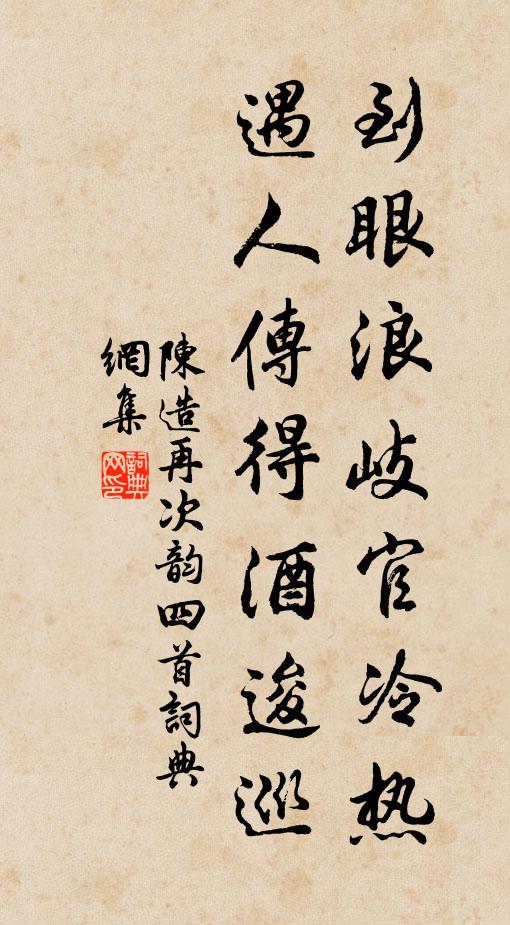 到眼浪歧官冷热
遇人傳得酒逡巡
陳造再次韵四首詞典
網集
詞典網印